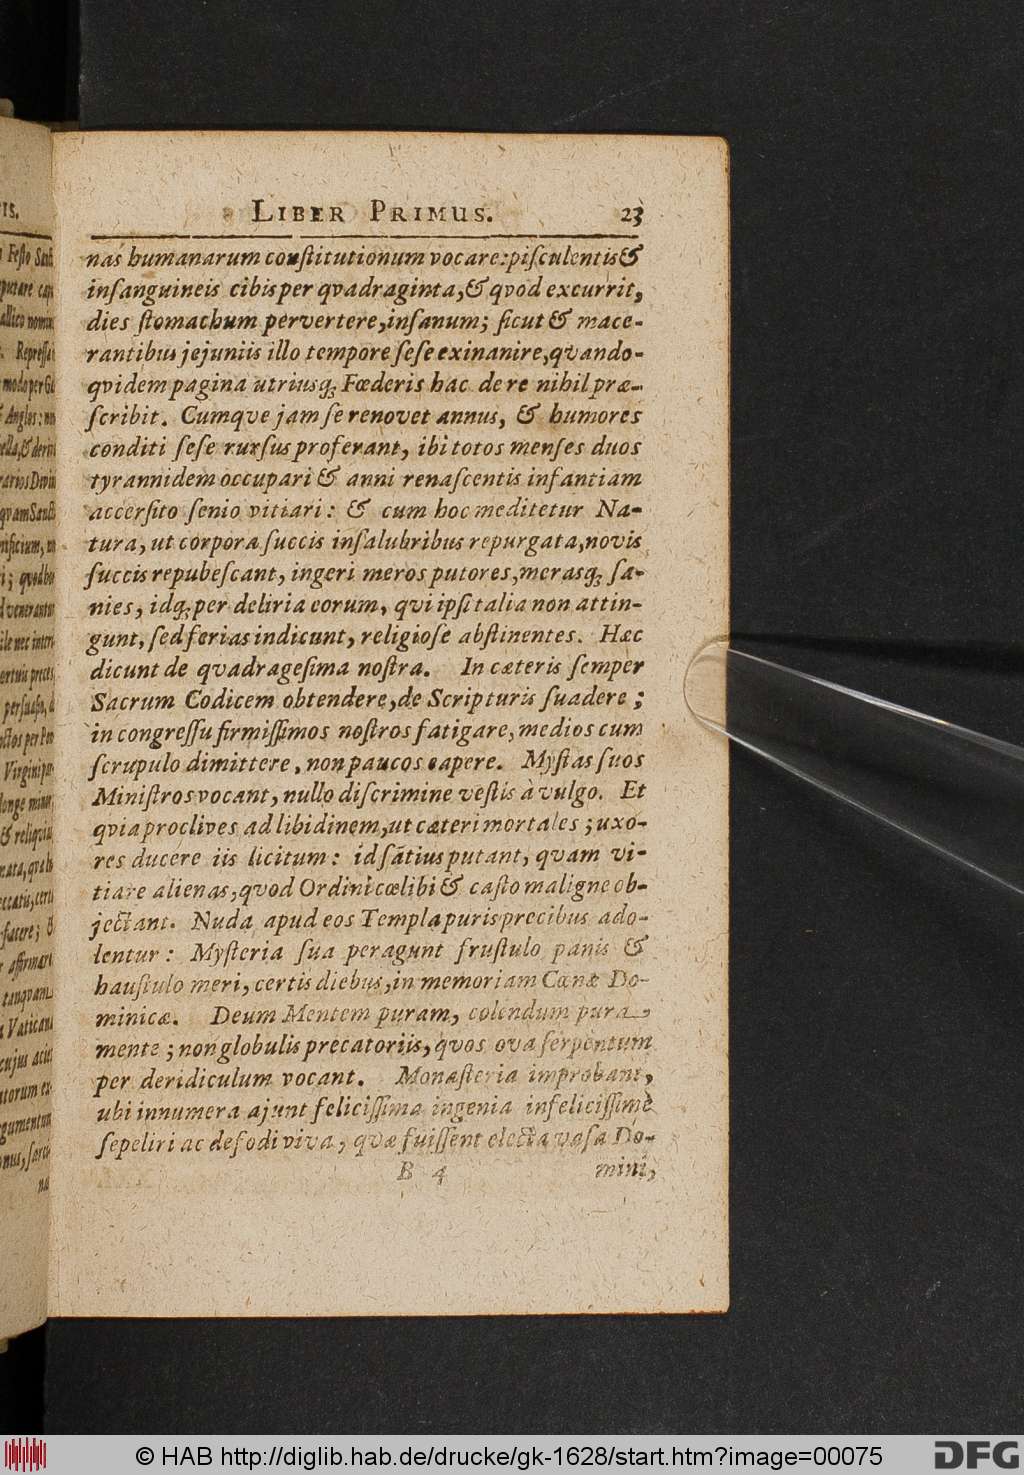 LIBER PRIMUS. 23
nas humanarum constitutionum vocare: pisculentis &
insanguineis cibis per qvadraginta, & qvod excurrit,
dies stomachum pervertere, insanum; sicut & mace-
rantibus jejuniis illo tempore sese exinanire, qvando-
qvidem pagina utriusq; Fœderis hac de re nihil præ-
scribit. Cumqve jam se renovet annus, & humores
conditi sese rursus proferant, ibi totos menses duos
tyrannidem occupari & anni renascentis infantiam
accersito senio vitiari: & cum hoc meditetur Na-
tura, ut corpora succis insalubribus repurgata, novis
succis repubescant, ingeri meros putores, merasq; sa-
nies, idq; per deliria eorum, qvi ipsi talia non attin-
gunt, sed ferias indicunt, religiose abstinentes. Hæc
dicunt de qvadragesima nostra. In cæteris semper
Sacrum Codicem obtendere, de Scripturis suadere;
in congressu firmissimos nostros fatigare, medios cum
scrupulo dimittere, non paucos capere. Mystas suos
Ministros vocant, nullo discrimine vestis à vulgo. Et
qvia proclives ad libidinem, ut cæteri mortales; uxo-
res ducere iis licitum: id sātius putant, qvam vi-
tiare alienas, qvod Ordini cœlibi & casto maligne ob-
jectant. Nuda apud eos Templa puris precibus ado-
lentur: Mysteria sua peragunt frustulo panis &
haustulo meri, certis diebus, in memoriam Cœnæ Do-
minicæ. Deum Mentem puram, colendum pura
mente; non globulis precatoriis, qvos ova serpentum
per deridiculum vocant. Monasteria improbant,
ubi innumera ajunt felicissima ingenia infelicissimè
sepeliri ac defodi viva, qvæ fuissent electa vasa Do-
B 4 mini,
IS.
© HAB http://diglib.hab.de/drucke/gk-1628/start.htm?image=00075
DFG